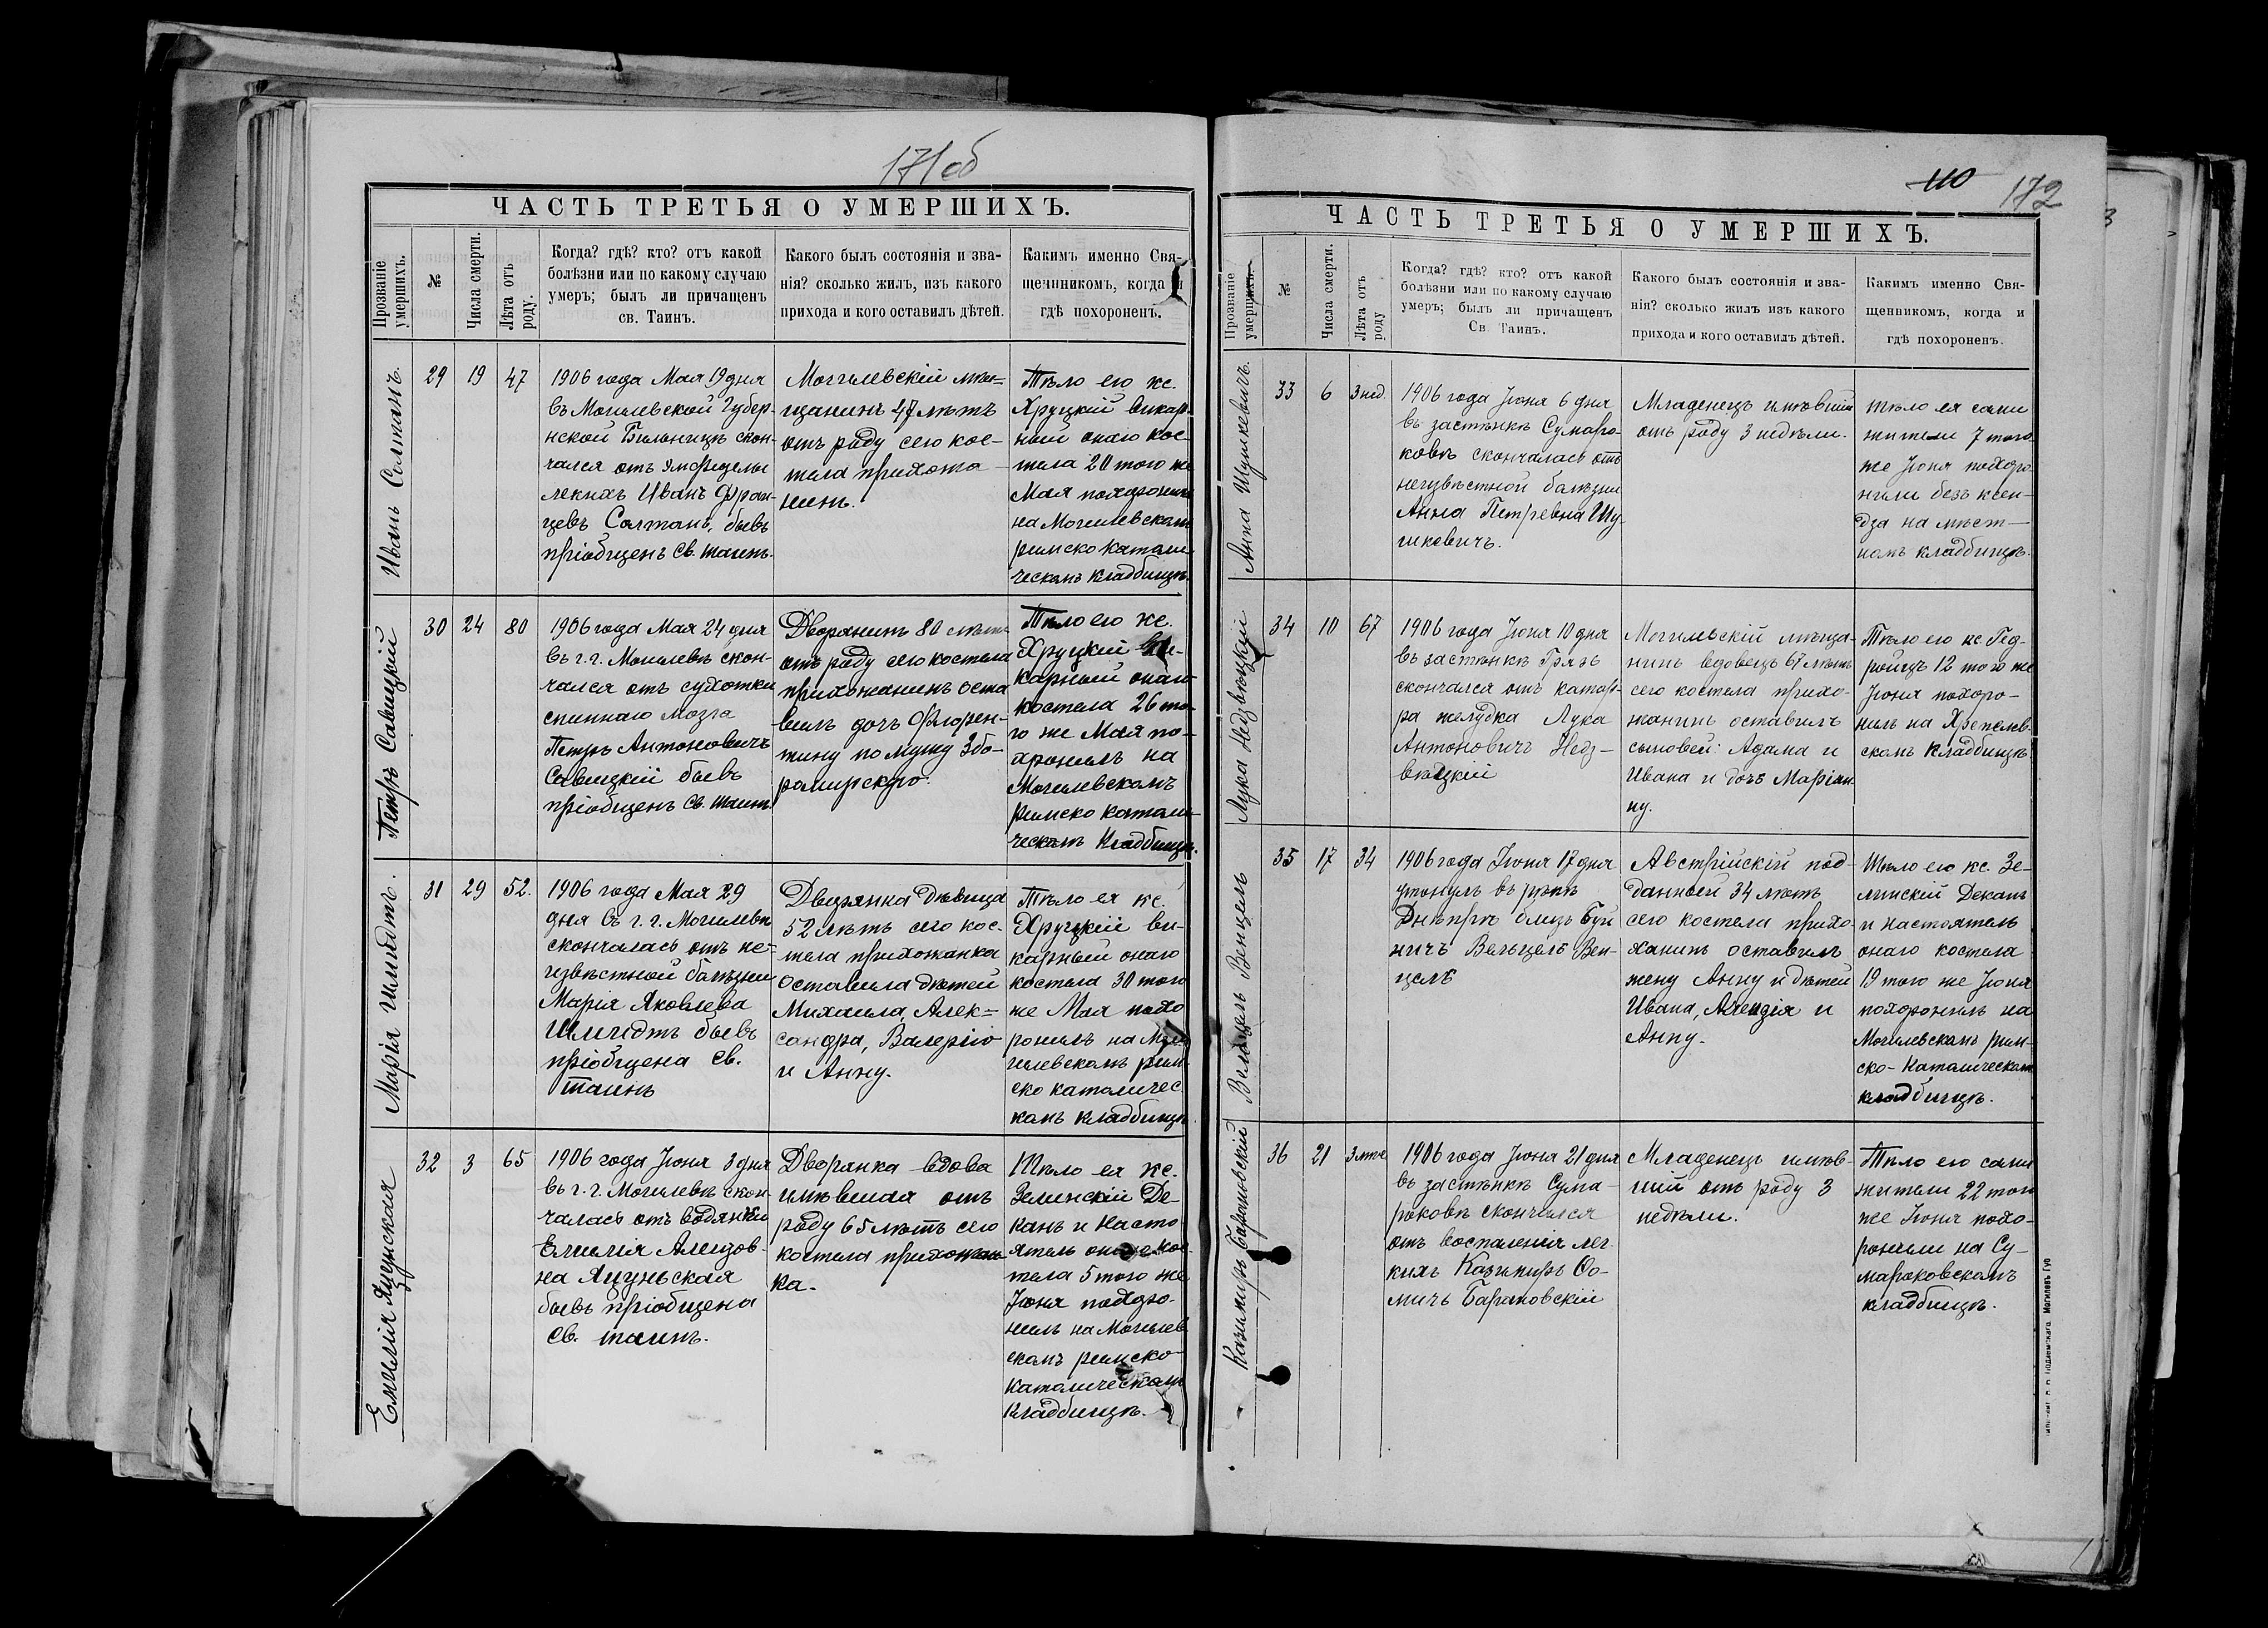 171 об
ЧАСТЬ ТРЕТЬЯ О УМЕРШИХЪ.
Прозваніе умершихъ.
№
Числа смерти.
Лѣта отъ роду.
Когда? гдѣ? кто? отъ какой
болѣзни или по какому случаю
умеръ; былъ ли причащенъ
св. Таинъ.
Какого былъ состоянія и зва-
нія? сколько жилъ, изъ какого
прихода и кого оставилъ дѣтей.
Какимъ именно Свя-
щенникомъ, когда и
гдѣ похороненъ.
Иванъ Солтанъ.
29
19
47
1906 года Мая 19 дня
въ Могилевской Губер-
нской Больницѣ скон-
чался отъ эмфизелы
легкихъ Иванъ Фран-
цевъ Солтанъ, бывъ
пріобщенъ Св. таинъ.
Могилевскій мѣщ=
щанинъ 47 лѣтъ
отъ роду сего кос-
тела прихожа-
нинъ.
Тѣло его кс.
Хруцкій викар-
ный онаго кос-
тела 20 того же
Мая похоронилъ
на Могилевскомъ
римско католи-
ческомъ кладбищѣ.
Петръ Савицкій
30
24
80
1906 года Мая 24 дня
въ г. г. Могилевѣ скон-
чался отъ сухотки
спиннаго мозга
Петръ Антоновичъ
Савицкій бывъ
пріобщенъ Св. таинъ
Дворянинъ 80 лѣтъ
отъ роду сего костела
прихожанинъ оста
вилъ дочь Флорен-
тину по мужу Збо-
ромирскую.
Тѣло его кс.
Хруцкій ви-
карный онаго
костела 26 то-
го же Мая по-
хронилъ на
Могилевскомъ
римско католи-
ческомъ кладбищѣ.
Марія Шмидтъ.
31
29
52.
1906 года Мая 29
дня въ г. г. Могилевѣ
скончалась отъ не-
извѣстной болѣзни
Марія Яковлева
Шмидтъ бывъ
пріобщена Св.
таинъ
Дворянка дѣвица
52 лѣтъ сего кос-
тела прихожанка
оставила дѣтей
Михаила, Алек=
сандра, Валерію
и Анну.
Тѣло ея кс.
Хруцкій ви-
карный онаго
костела 30 того
же Мая похо
ронилъ на Мо
гилевскомъ рим-
ско католичес
комъ кладбищѣ
Емилія Яцунская
32
3
65
1906 года Іюня 3 дня
въ г. г. Могилевѣ скон-
чалась отъ водянки
Емилія Алецзов-
на Яцуньская
бывъ пріобщена
Св. таинъ.
Дворянка вдова
имѣвшая отъ
роду 65 лѣтъ сего
костела прихожан-
ка.
Тѣло ея кс.
Зелинскій Де-
канъ и Насто
ятель онаго кос-
тела 5 того же
Іюня похоро-
нилъ на Могилев
скомъ римско-
католическомъ
кладбищѣ.
110
172
ЧАСТЬ ТРЕТЬЯ О УМЕРШИХЪ.
Прозваніе умершихъ.
№
Числа смерти.
Лѣта отъ роду
Когда? гдѣ? кто? отъ какой
болѣзни или по какому случаю
умеръ; былъ ли причащенъ
Св. Таинъ.
Какого былъ состоянія и зва-
нія? сколько жилъ изъ какого
прихода и кого оставилъ дѣтей.
Какимъ именно Свя-
щенникомъ, когда и
гдѣ похороненъ.
Анна Шушкевичъ.
33
6
3 нед.
1906 года Іюня 6 дня
въ застѣнкѣ Сумаро-
ковѣ скончалась отъ
неизвѣстной болѣзни
Анна Петревна Шу-
шкевичъ.
Младенецъ имѣвшій
отъ роду 3 недѣли.
тѣло ея сами
жители 7 того
же Іюня похоро-
нили безъ ксен-
дза на мѣст—
номъ кладбищѣ.
Лука Недзвецкій
34
10
67
1906 года Іюня 10 дня
въ застѣнкѣ Грязь
скончался отъ катар-
ра желудка Лука
Антоновичъ Недз-
вѣцкій
Могилевскій мѣща-
нинъ вдовецъ 67 лѣтъ
сего костела прихо-
жанинъ оставилъ
сыновей: Адама и
Ивана и дочь Маріан
ну.
Тѣло его кс Гед-
ройцъ 12 того же
Іюня похоро-
нилъ на Хрепелев-
скомъ кладбищѣ.
Вельцель Венцель
35
17
34
1906 года Іюня 17 дня
утонулъ въ рѣкѣ
Днѣпрѣ близъ Буй
ничъ Вельцель Вен-
цель
Австрійскій под-
данный 34 лѣтъ
сего костела прихо-
жанинъ оставилъ
жену Анну и дѣтей
Ивана, и
Анну.
Тѣло его кс. Зе-
линскій Деканъ
и настоятель
онаго костела
19 того же Іюня
похоронилъ на
Могилевскомъ рим-
ско-католическомъ
кладбищѣ.
Казимиръ Барановскій
36
21
1906 года Іюня 21 дня
въ застѣнкѣ Сума-
роковѣ скончался
отъ воспаленія лег
кихъ Казимиръ Ѳо-
мичъ Барановскій
Младенецъ имѣв-
шій отъ роду 3
недѣли.
Тѣло его сами
жители 22 того
же Іюня похо-
ронили на Су-
мароковскомъ
кладбищѣ.